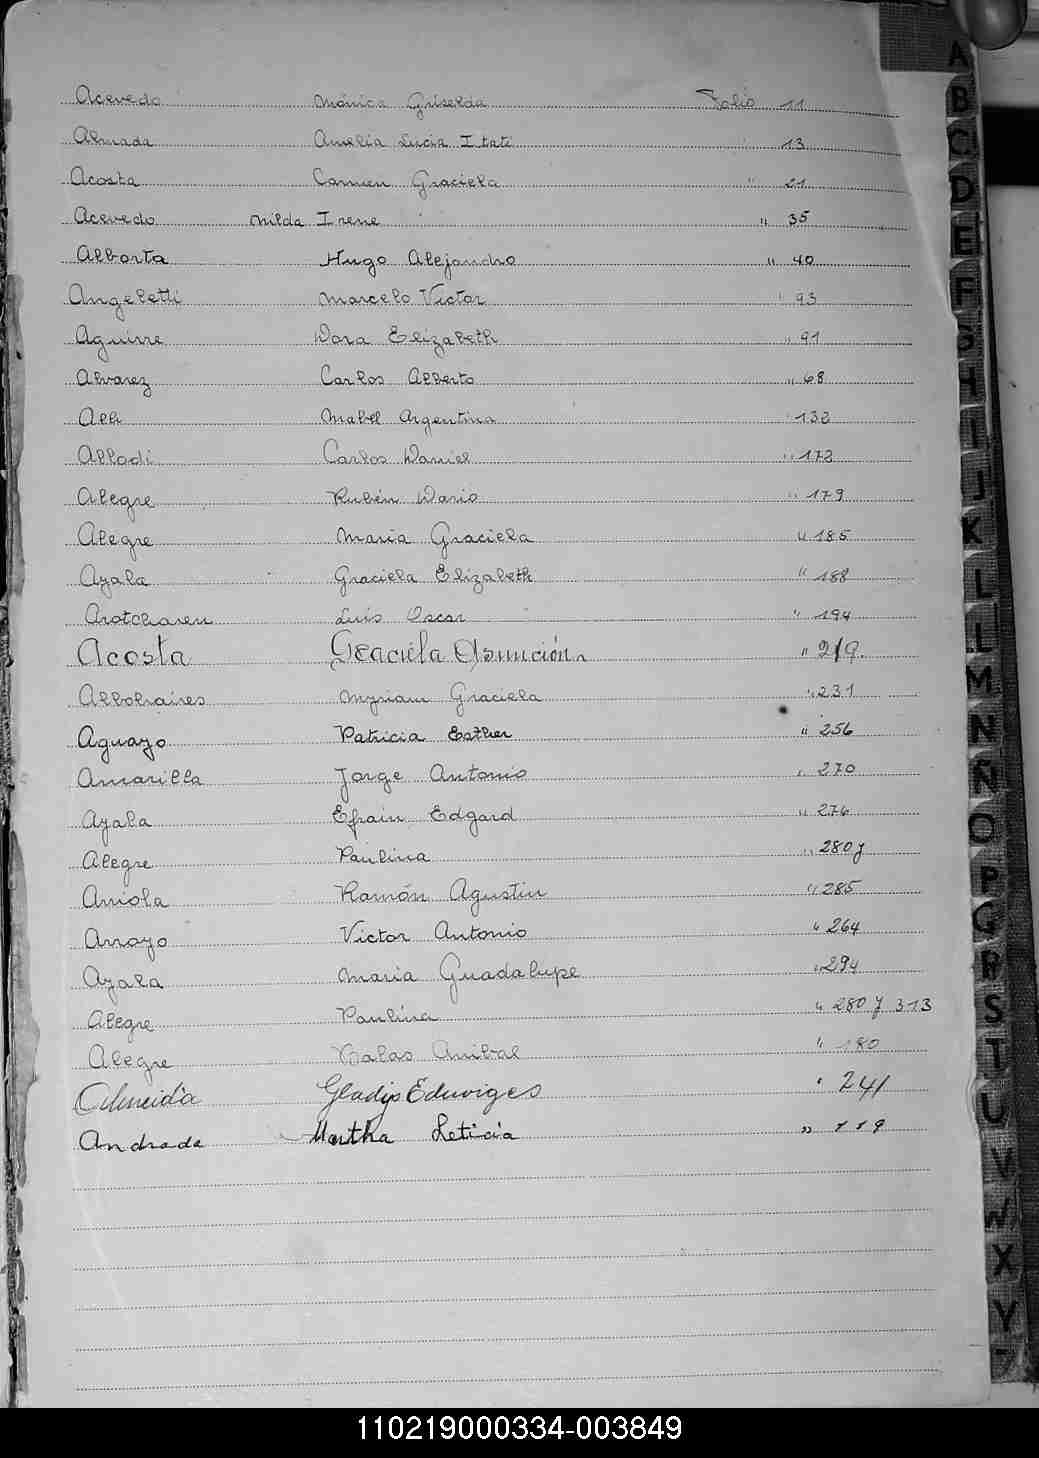 Acevedo Mónica Griselda Folio 11
Almada Amelia Lucia Itatí 13
Acosta Carmen Graciela " 21
Acevedo Nilda Irene " 35
Alborta Hugo Alejandro " 40
Angeletti Marcelo Victor " 93
Aguirre Dora Elizabeth " 91
Alvarez Carlos Alberto " 68
Mabel Argentina 132
Allodi Carlos Daniel " 172
Alegre Rubén Dario " 179
Alegre Maria Graciela " 185
Ayala Graciela Elizabeth " 188
Arotcharen Luis Oscar " 194
Acosta Graciela Asunción " 219
Myriam Graciela " 231
Aguayo Patricia Esther " 256
Amarilla Jorge Antonio " 270
Ayala Efrain Edgard " 276
Alegre Paulina " 280 y
Arriola Ramón Agustin " 285
Arroyo Victor Antonio " 264
Ayala Maria Guadalupe " 294
Alegre Paulina " 280 y 313
Alegre Anibal " 180
Almeida Gladys Eduviges " 241
Andrada Martha Leticia " 119
A
B
C
D
E
F
G
H
I
J
K
L
Ll
M
N
Ñ
O
P
Q
R
S
T
U
V
W
X
Y
110219000334-003849